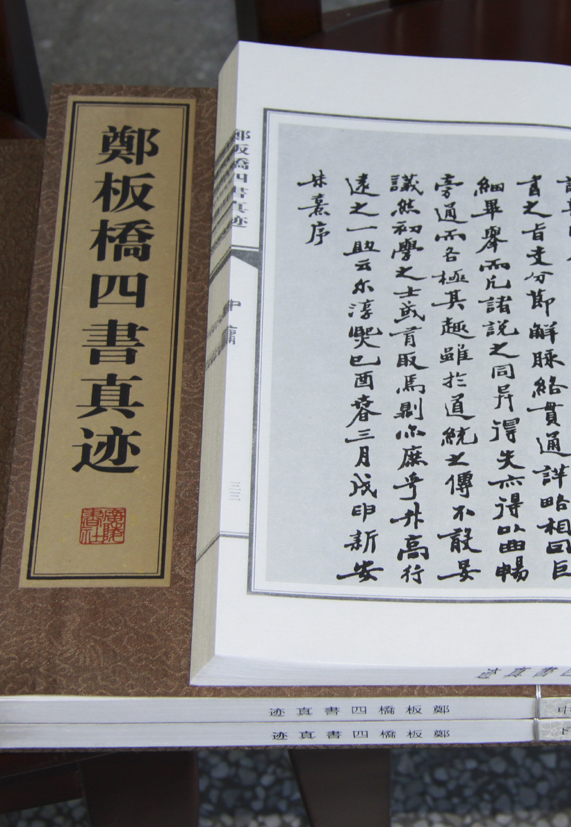 鄭板橋四書真迹
廣陵書社
鄭板橋四書真迹
中庸
三三
書之旨支分節解脉絡貫通詳略相因巨
細畢舉而凡諸説之同异得失亦得以曲暢
旁通而各極其趣雖於道統之傳不敢妄
議然初學之士或有取焉則亦庶乎升高行
遠之一助云尔淳熙己酉春三月戊申新安
朱熹序
書真迹
鄭板橋四書真迹
中
鄭板橋四書真迹
下